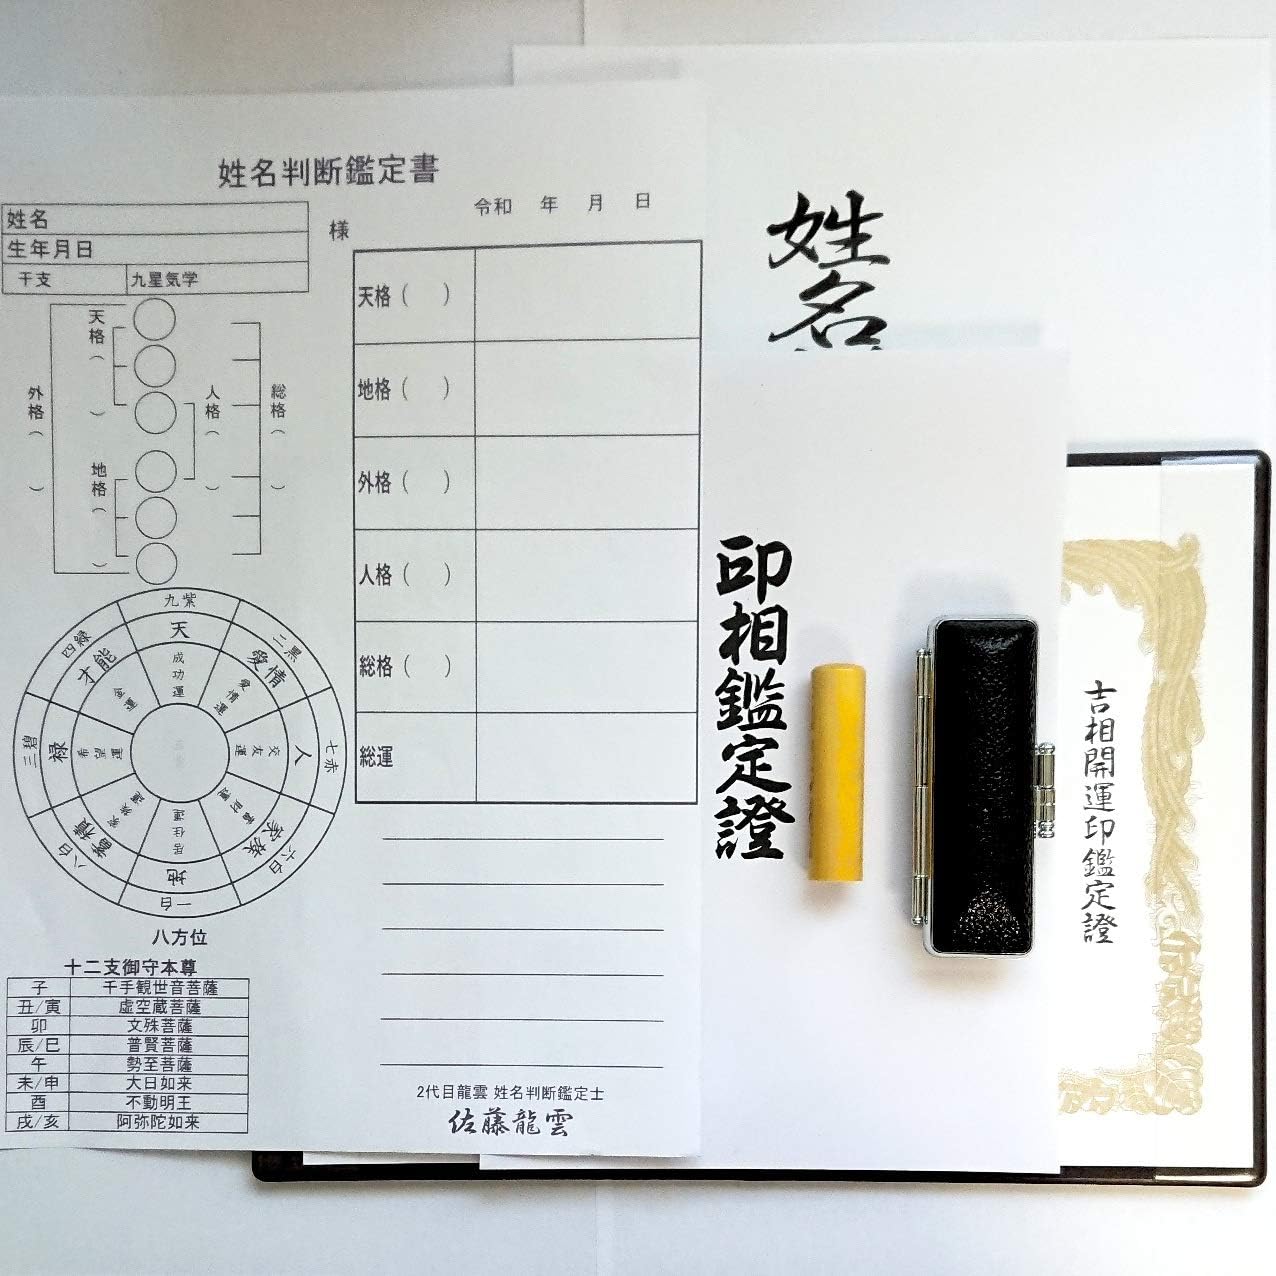 姓名判断鑑定書
令和 年 月 日
姓名
様
生年月日
干支 九星気学
天格( )
人格( )
地格( )
外格( )
総格( )
天格( )
地格( )
外格( )
人格( )
総格( )
総運
九紫
二黒
七赤
六白
一白
八白
三碧
四緑
天
愛情
人
家族
地
蓄積
禄
才能
成功運
愛情運
交友運
居住運
家族運
金運
八方位
十二支御守本尊
子 千手観世音菩薩
丑/寅 虚空蔵菩薩
卯 文殊菩薩
辰/巳 普賢菩薩
午 勢至菩薩
未/申 大日如来
酉 不動明王
戌/亥 阿弥陀如来
2代目龍雲 姓名判断鑑定士
佐藤龍雲
姓名
印相鑑定證
吉相開運印鑑定證